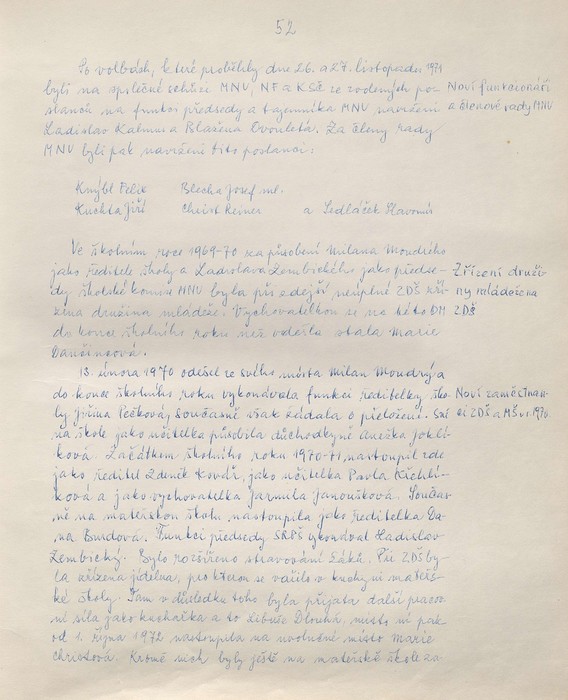 52
Po volbách, které proběhly dne 26. a 27. listopadu 1971
byli na společné schůzi MNV, NF a KSČ ze zvolených po-
slanců na funkci předsedy a tajemníka MNV navrženi
Ladislav Kalmus a Blažena Dvouletá. Za členy rady
MNV byli pak navrženi tito poslanci:
Noví funkcionáři
a členové rady MNV
Kmýbl Felix Blecha Josef ml.
Kuchta Jiří Christ Reiner a Sedláček Slavomír
Ve školním roce 1969-70 za působení Milana Moudrého
jako ředitele školy a Ladislava Zembického jako předse-
dy školské komise MNV byla při zdejší neúplné ZDŠ zří-
zena družina mládeže. Vychovatelkou se na této DM
do konce školního roku než odešla stala Marie
Dančincová.
Zřízení druži-
ny mládeže na
ZDŠ
13. února 1970 odešel ze svého místa Milan Moudrý a
do konce školního roku vykonávala funkci ředitelky ško-
ly Jiřina Pečková, současně však žádala o přeložení. S ní
na škole jako učitelka působila důchodkyně Anežka Jokli-
ková. Začátkem školního roku 1970-71 nastoupil zde
jako ředitel Zdeněk Kovář, jako učitelka Pavla Kichli-
ková a jako vychovatelka Jarmila Janoušková. Součas-
ně na mateřskou školu nastoupila jako ředitelka Da-
na Burdová. Funkci předsedy SRPŠ vykonával Ladislav
Zembický. Bylo rozšířeno stravování žáků. Při ZDŠ by-
la zřízena jídelna, pro kterou se vařilo v kuchyni mateřs-
ké školy. Tam v důsledku toho byla přijata další pracov-
ní síla jako kuchařka a to Libuše Dlouhá, místo ní pak
od 1. října 1972 nastoupila na uvolněné místo Marie
Christová. Kromě nich byly ještě na mateřské škole za
Noví zaměstnan-
ci ZDŠ a MŠ v r. 1970.